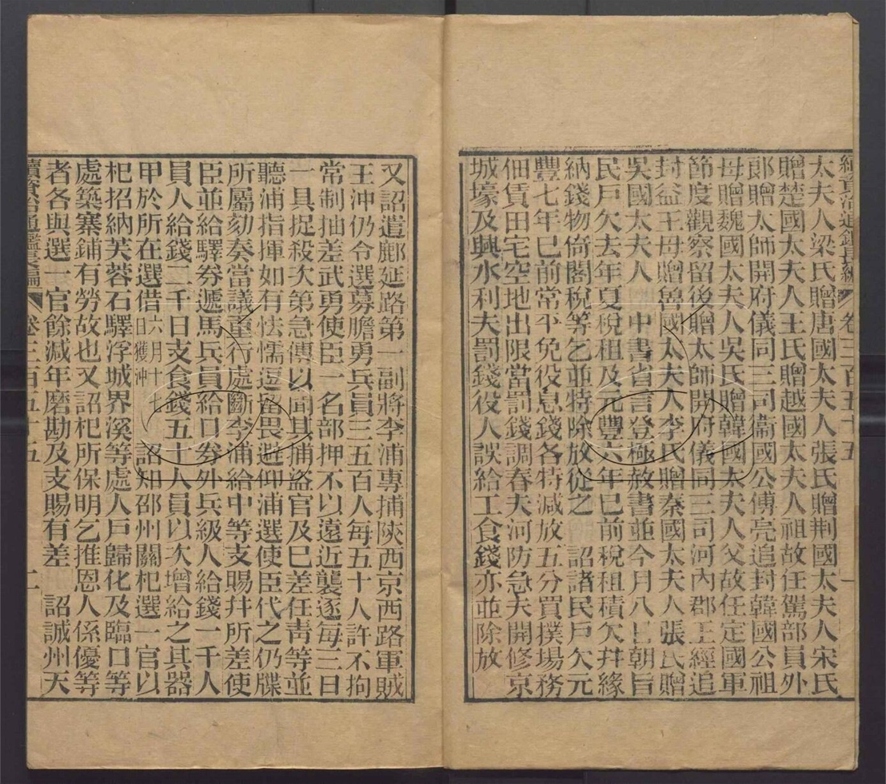 續資治通鑑長編 卷三百五十五 一
太夫人梁氏贈唐國太夫人張氏贈荆國太夫人宋氏
贈楚國太夫人王氏贈越國太夫人祖故任駕部員外
郎贈太師開府儀同三司衞國公傅亮追封韓國公祖
母贈魏國太夫人吳氏贈韓國太夫人父故任定國軍
節度觀察留後贈太師開府儀同三司河內郡王經追
封益王母贈魯國太夫人李氏贈秦國太夫人張氏贈
吳國太夫人　中書省言登極赦書並今月八日朝旨
民戶欠去年夏稅租及元豐六年已前稅租積欠幷緣
納錢物倚閣稅等乞並特除放從之　詔諸民戶欠元
豐七年已前常平免役息錢各特減放五分買撲場務
佃賃田宅空地出限當罰錢調春夫河防急夫開修京
城壕及興水利夫罰錢役人誤給工食錢亦並除放
又詔遣鄜延路第一副將李浦專捕陝西京西路軍賊
王沖仍令選募膽勇兵員三五百人每五十人許不拘
常制抽差武勇使臣一名部押不以遠近襲逐每三日
一具捉殺次第急傳以聞其捕盜官及已差任靑等並
聽浦指揮如有怯懦逗留畏避仰浦選使臣代之仍牒
所屬劾奏當議重行處斷李浦給中等支賜幷所差使
臣並給驛券遞馬兵員給口券外兵級人給錢一千人
員人給錢二千日支食錢五十人員以次增給之其器
甲於所在選借六月十七日獲沖　詔知邵州關杞選一官以
杞招納芙蓉石驛浮城界溪等處人戶歸化及臨口等
處築寨鋪有勞故也又詔杞所保明乞推恩人係優等
者各與選一官餘減年磨勘及支賜有差　詔誠州天
續資治通鑑長編 卷三百五十五 二